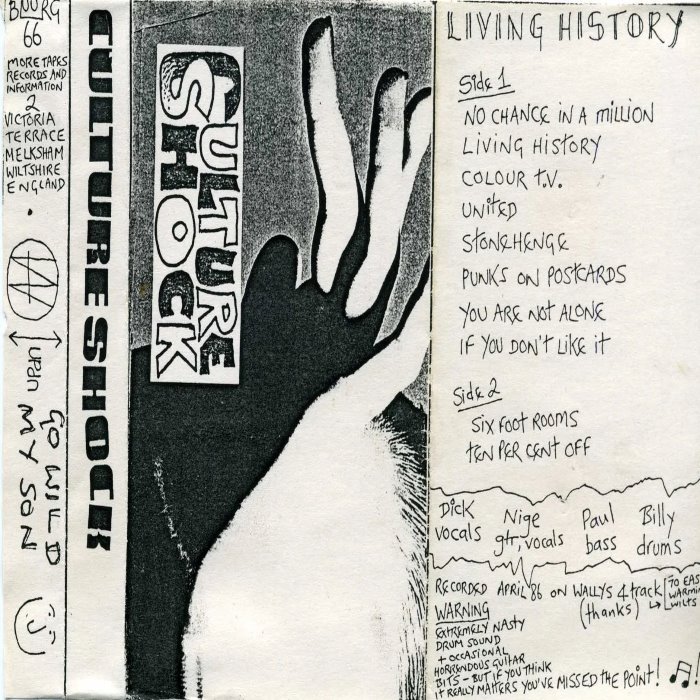 BLUURG
66
MORE TAPES
RECORDS AND
INFORMATION
2
VICTORIA
TERRACE
MELKSHAM
WILTSHIRE
ENGLAND
GO WILD
MY SON
CULTURE SHOCK
CULTURE
SHOCK
LIVING HISTORY
Side 1
NO CHANCE IN A MILLION
LIVING HISTORY
COLOUR T.V.
UNITED
STONEHENGE
PUNKS ON POSTCARDS
YOU ARE NOT ALONE
IF YOU DON'T LIKE IT
Side 2
SIX FOOT ROOMS
TEN PER CENT OFF
Dick
vocals
Nige
gtr, vocals
Paul
bass
Billy
drums
RECORDED APRIL '86 ON WALLYS 4 track
(thanks)
70 EAS
WARMIN
WILTS
WARNING
EXTREMELY NASTY
DRUM SOUND
+ OCCASIONAL
HORRENDOUS GUITAR
BITS - BUT IF YOU THINK
IT REALLY MATTERS YOU'VE MISSED THE POINT!